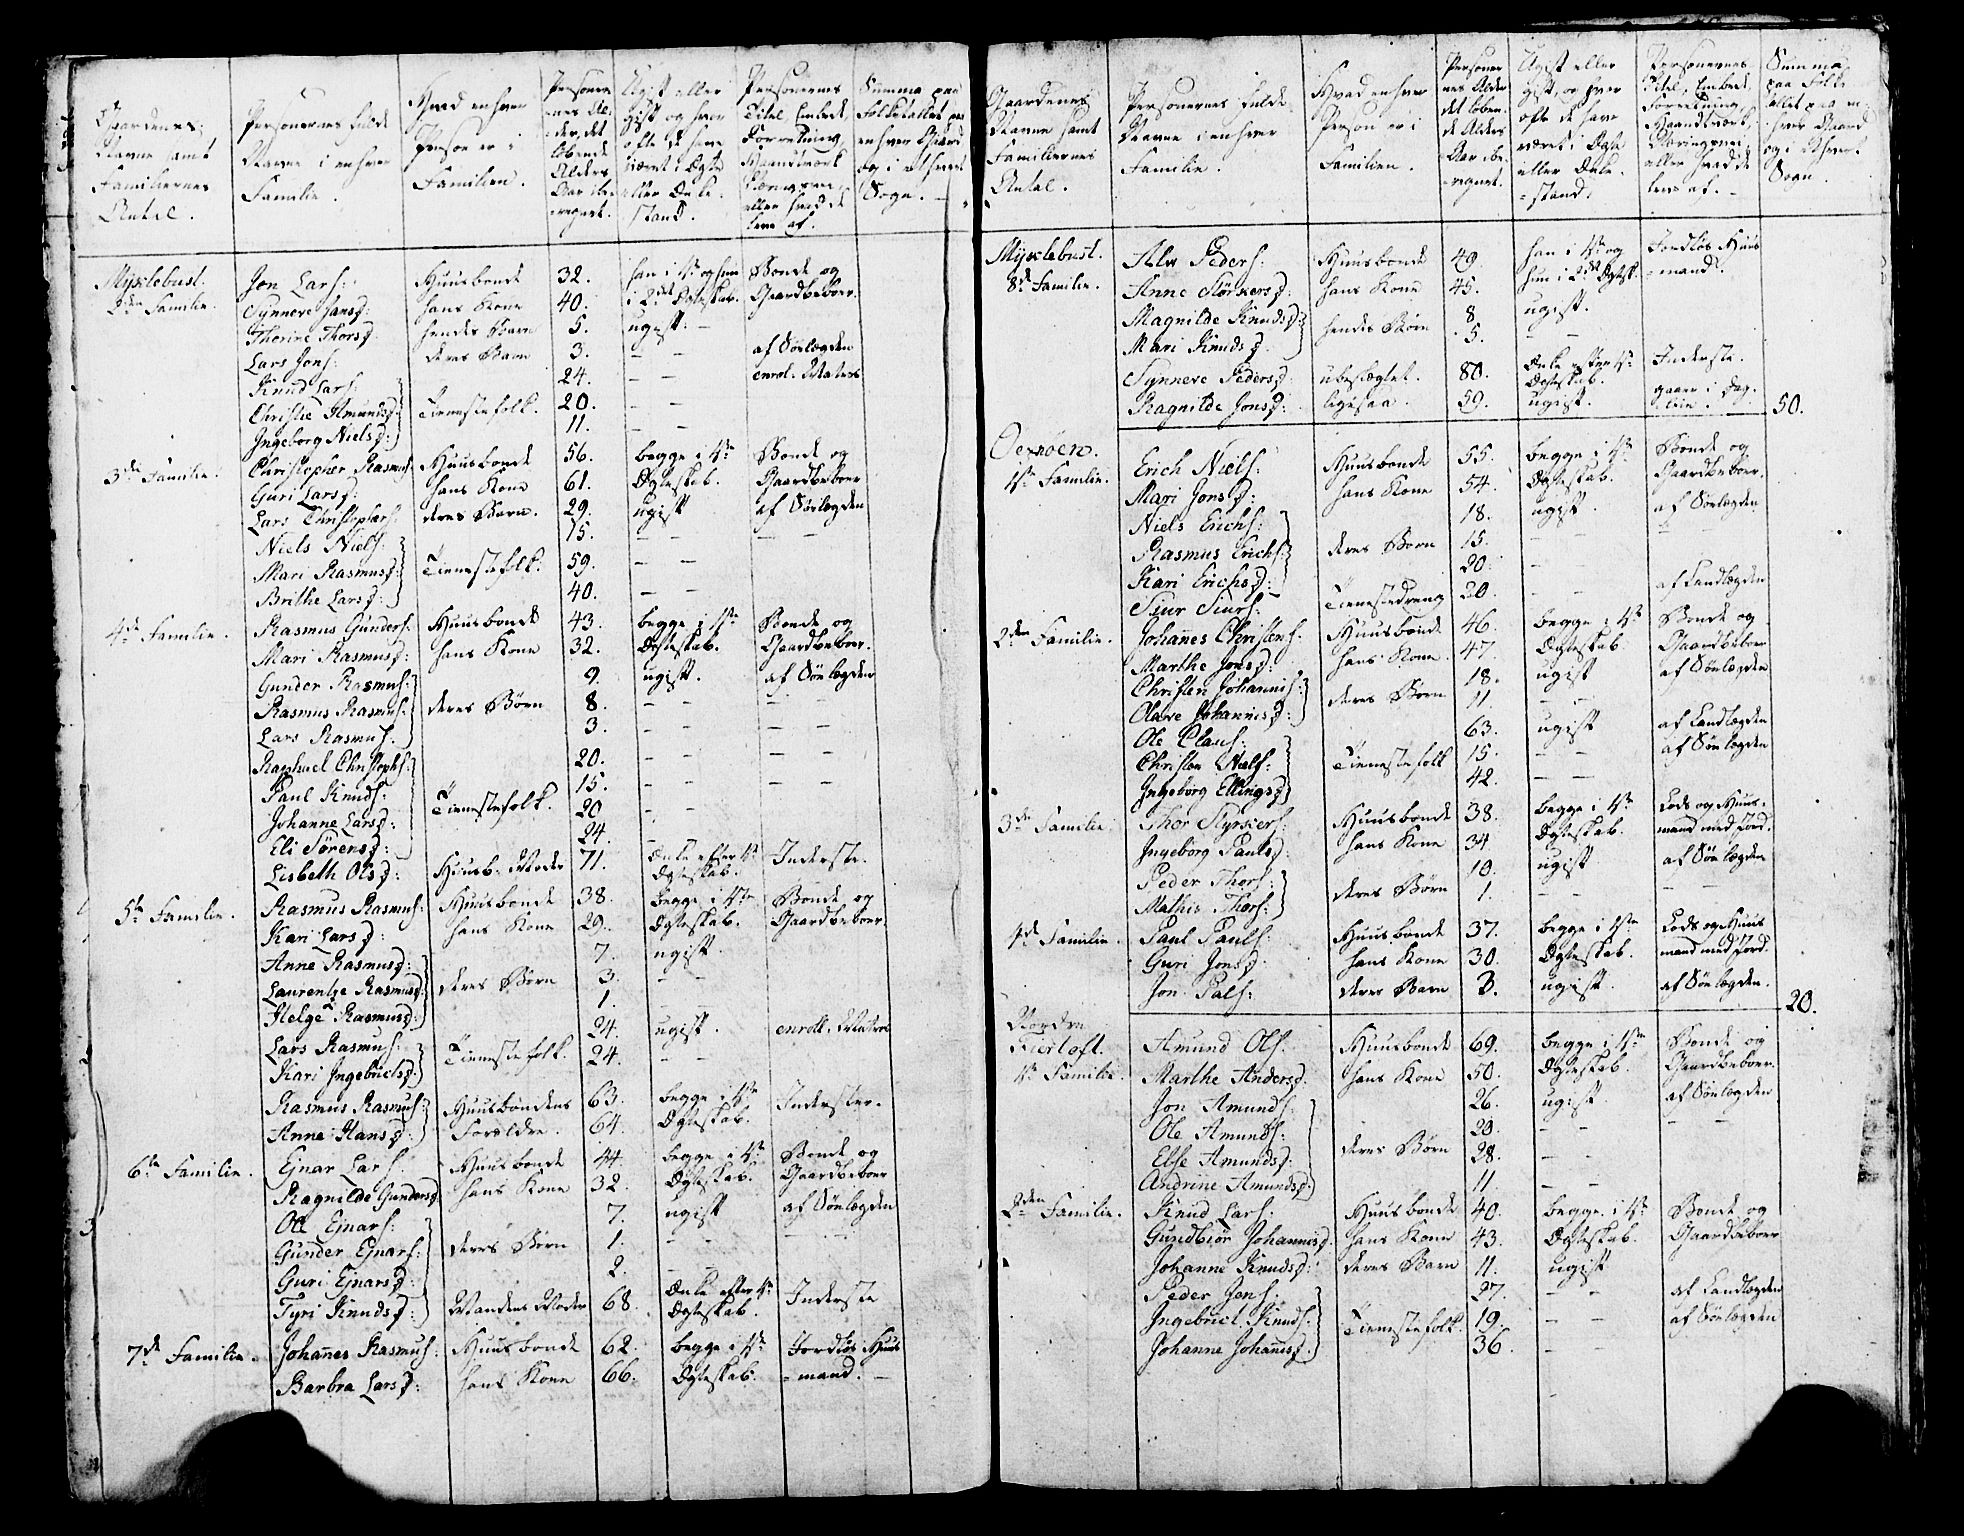 Gaardenes Navne samt Familiernes Antal.
Personernes fulde Navne i enhver Familie.
Hvad enhver Person er i Familien.
Personernes Alder, det løbende Alders Aar iberegnet.
Ugift eller gift og hvor ofte de have været i Ægte eller Enke stand.
Personernes Titel, Embede, Forretning, Haandværk Næringsvei eller hvad de leve af.
Summa paa Folketallet paa enhver Gaard og i ethvert Sogn.
Myxlebust.
2den Familie. Jon Lars: Huusbonde 32. han i 1ste og hun Bonde og
Synneve Jansd: hans Kone 40. i 2det Ægteskab. Gaardbeboer.
Thorine Thorsd: hendes Barn 5. ugift.
Lars Jons: deres Barn 3. – – af Søelægden
Knud Lars: 24. – – enrol. Matros
Christie Amundsd: Tienestefolk. 20. – –
Ingeborg Nielsd: 11. – –
3die Familie. Christopher Rasmus: Huusbonde 56. begge i 1ste Bonde og
Guri Larsd: hans Kone 61. Ægteskab. Gaardbeboer
Lars Christophers: deres Barn. 29. ugift af Søelægden
Niels Niels: 15. – –
Mari Rasmusd: Tienestefolk. 59. – –
Brithe Larsd: 40. – –
4de Familie. Rasmus Gunders: Huusbonde 43. begge i 1ste Bonde og
Mari Rasmusd: hans Kone 32. Ægteskab. Gaardbeboer.
Gunder Rasmus: 9. ugift. af Søelægden
Rasmus Rasmus: deres Børn 8. – –
Lars Rasmus: 3. – –
Raphael Christophs: 20. – –
Paul Knuds: 15. – –
Johanne Larsd: Tienestefolk. 20 – –
Eli Sörensd: 24. – –
Lisbeth Olsd: Huusb: Moder 71. Enke efter 1ste Ægteskab. Inderste.
5te Familie. Rasmus Rasmus: Huusbonde 38. begge i 1ste Bonde og
Kari Larsd: hans Kone 29. Ægteskab. Gaardbeboer.
Anne Rasmusd: 7. ugift.
Laurentze Rasmusd: deres Børn 3. – –
Helge Rasmusd: 1. – –
Lars Rasmus: 24. ugift. enroll. Matros
Kari Ingebricts d: Tienestefolk. 24. – –
Rasmus Rasmus: Huusbondens 63. begge i 1ste Inderster.
Anne Hansd: Forældre. 64. Ægteskab.
6te Familie. Ejnar Lars: Huusbonde 44 begge i 1ste Bonde og
Ragnilde Gundersd: hans Kone 32. Ægteskab. Gaardbeboer
Ole Ejnars: 7. ugift af Søelægden
Gunder Ejnars: deres Børn 1. – –
Guri Ejnarsd: 2. – –
Tyri Knudsd: Mandens Moder 68. Enke efter 1ste Ægteskab. Inderste
7de Familie. Johannes Rasmus: Huusbonde 62. begge i 1ste Jordløs Huus
Barbra Larsd: hans Kone 66. Ægteskab. -mand.
Gaardenes Navne samt Familiernes Antal.
Personernes fulde Navne i enhver Familie.
Hvad enhver Person er i Familien.
Personernes Alder det løbende Alders Aar iberegnet.
Ugift eller gift, og hvor ofte de have været i Ægte eller Enke-stand.
Personernes Titel, Embede, Forretning, Haandværk, Næringsvei, eller hvad de leve af.
Summa paa Folketallet paa enhver Gaard og i ethvert Sogn.
Myxlebust.
8de Familie. Peders: Huusbonde 49. han i 1ste og Jordløs Huus
Anne Störkersd: hans Kone 45. hun i 2det Ægtesk. -mand.
Magnilde Knudsd: hendes Børn 8. ugift.
Mari Knudsd: 5. – –
Synneve Pedersd: ubeslægtet. 80. Enke efter 1ste Ægteskab. Inderste.
Ragnilde Jonsd: ligesaa 59. ugift. gaaer i Dagleie. 50.
Oexnöen.
1ste Familie. Erich Niels: Huusbonde 55. begge i 1ste Bonde og
Mari Jonsd: hans Kone 54. Ægteskab. Gaardbeboer.
Niels Erichs: 18. ugift af Søelægden
Rasmus Erichs: deres Børn 15. – –
Kari Erichsd: 20. – –
Siur Siurs: Tienestedreng 20. – – af Landlægden
2den Familie. Johannes Christens: Huusbonde 46. begge i 1ste Bonde og
Marthe Jonsd: hans Kone 47. Ægteskab. Gaardbeboer
Christen Johannis: deres Børn 18. ugift af Søelægden
Olave Johannisd: 11. – –
Ole Claus: 63. ugift af Landlægden
Christen Niels: Tienestefolk 15. – – af Søelægden
Ingeborg Ellingsd: 42. – –
3die Familie. Thor Styrkers: Huusbonde 38. begge i 1ste Lods og Huus-
Ingeborg Paulsd: hans Kone 34. Ægteskab. mand med Jord.
Peder Thors: deres Børn 10. ugift af Søelægden
Mathis Thors: 1. – –
4de Familie. Paul Pauls: Huusbonde 37. begge i 1ste Lods og Huus
Guri Jonsd: hans Kone 30. Ægteskab. mand med Jord.
Jon Pals: deres Barn 3. ugift. af Søelægden. 20.
Nordre
1ste Familie. Amund Ols: Huusbonde 69. begge i 1ste Bonde og
Marthe Andersd: hans Kone 50. Ægteskab. Gaardbeboer.
Jon Amunds: 26. ugift. af Søelægden
Ole Amunds: deres Børn 20. – –
Else Amundsd: 28. – –
Andrine Amundsd: 11 – –
2den Familie. Knud Lars: Huusbonde 40. begge i 1ste Bonde og
Gundbiör Johannisd: hans Kone 43. Ægteskab. Gaardbeboer
Johanne Knudsd: deres Barn 11. ugift
Peder Jens: 27. – – af Landlægden
Ingebrict Knuds: Tienestefolk. 19. – – af Søelægden
Johanne Johannisd: 36. –